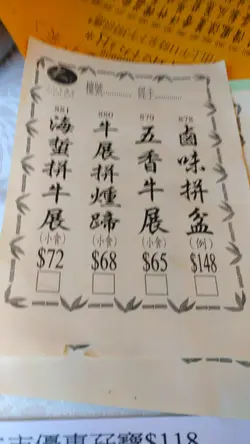 檯號............ 經手............
878
鹵味拼盆
(例)
$148
879
五香牛展
(小食)
$65
880
牛展拼燻蹄
(小食)
$68
881
海蜇拼牛展
(小食)
$72
$118